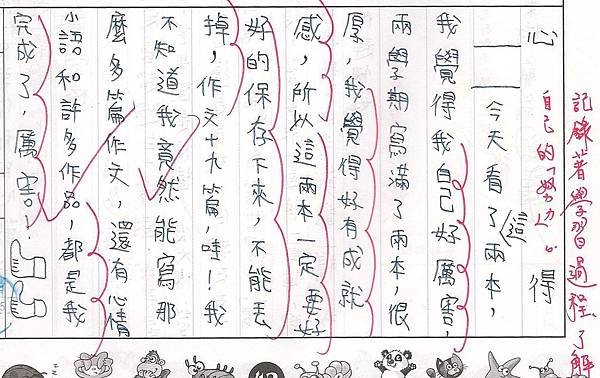 記錄著學習過程,了解
自己的「努力」。
心得
今天看了這兩本,
我覺得我自己好厲害,
兩學期寫滿了兩本,很
厚,我覺得好有成就
感,所以這兩本一定要好
好的保存下來,不能丟
掉,作文十九篇,哇!我
不知道我竟然能寫那
麼多篇作文,還有心情
小語和許多作品,都是我
完成了,厲害!